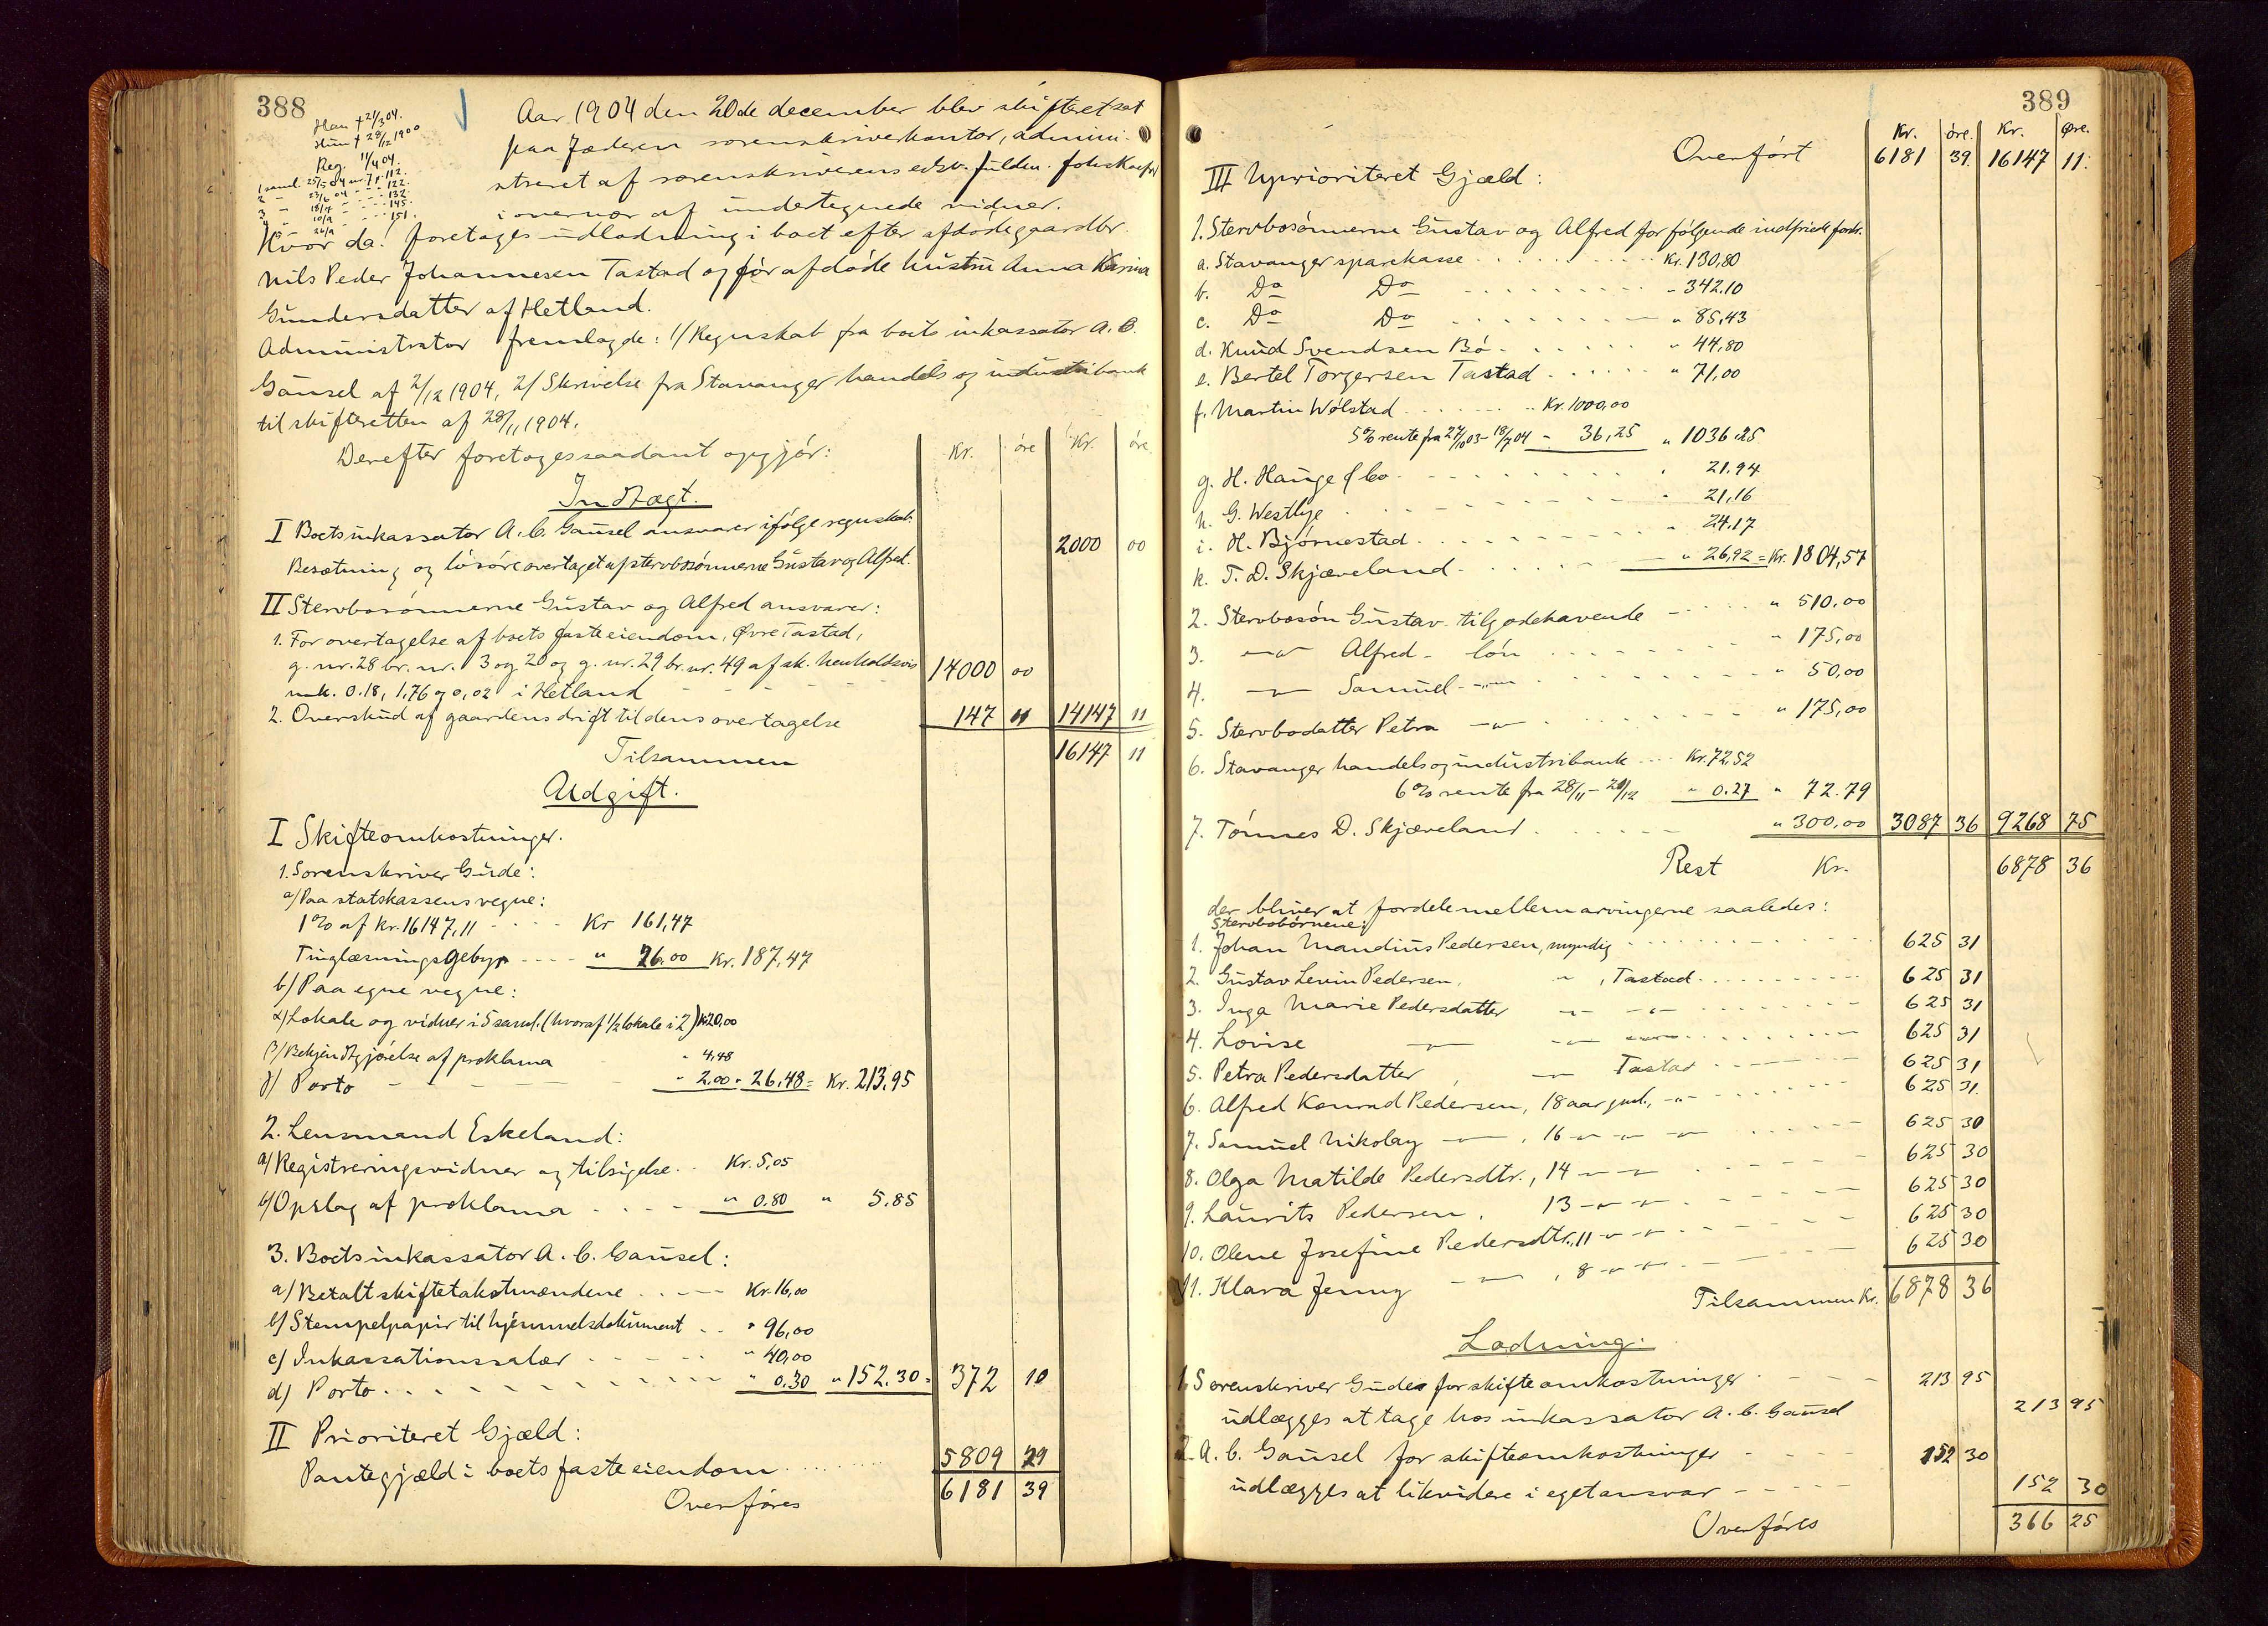 388
Han † 21/3 04.
Hun † 28/12 1900
Reg. 11/4 04.
1 saml. 25/5 04 nr. 71-112.
2 — 23/6 04 - - - 122.
3 — 18/7 - - - 132.
10/9 - - - 145.
26/9 - - - 151.
Aar 1904 den 20de december blev skifteret sat
paa Jæderen sorenskriverkontor, admini-
streret af sorenskriverens edsv. fuldm.
i overvær af undertegnede vidner.
Hvor da: foretoges udlodning i boet efter afdøde gaardbr.
Nils Peder Johannesen Tastad og før afdøde hustru Anna Karina
Gundersdatter af Hetland.
Administrator fremlagde: 1/ Regnskab fra boets inkassator A. C.
Gausel af 2/12 1904, 2/ Skrivelse fra Stavanger handels og industribank
til skifteretten af 28/11 1904.
Derefter foretoges saadant opgjør:
Kr. øre Kr. øre
Indtægt.
I Boets inkassator A. C. Gausel ansvarer ifølge regnskab.
Besætning og løsøre overtaget af stervbosønnerne Gustav og Alfred. 2000 00
II Stervbosønnerne Gustav og Alfred ansvarer:
1. For overtagelse af boets faste eiendom, Øvre Tastad,
g. nr. 28 br. nr. 3 og 20 og g. nr. 29 br. nr. 49 af sk. henholdsvis
mk. 0.18, 1,76 og 0,02 i Hetland - - - - 14000 00
2. Overskud af gaardens drift til dens overtagelse 147 11 14147 11
Tilsammen 16147 11
Udgift.
I Skifteomkostninger.
1. Sorenskriver Gude:
a/ Paa statskassens vegne:
1% af kr. 16147,11 - - - Kr 161,47
Tinglæsningsgebyr - - - - " 26.00 Kr. 187,47
b/ Paa egne vegne:
α/ Lokale og vidner i 5 saml. (hvoraf 1/2 lokale i 2) Kr 20,00
β/ Bekjendtgjørelse af proklama - " 4,48
γ/ Porto - - - " 2.00 - 26,48 = Kr. 213,95
2. Lensmand Eskeland:
a/ Registreringsvidner og tilsigelse . . Kr. 5,05
b/ Opslag af proklama . . . . " 0.80 " 5.85
3. Boets inkassator A. C. Gausel:
a/ Betalt skiftetakstmændene . . . — Kr. 16,00
b/ Stempelpapir til hjemmelsdokument . . " 96,00
c/ Inkassationssalær . . . . " 40,00
d/ Porto . . . . . . " 0,30 " 152.30 = 372 10
II Prioriteret Gjæld:
Pantegjæld i boets faste eiendom . . . . . . 5809 29
Overføres 6181 39
389
Kr. øre. Kr. Øre.
Overført 6181 39. 16147 11.
III Uprioriteret Gjæld:
1. Stervbosønnerne Gustav og Alfred for følgende indfriede fordr.
a. Stavanger sparekasse . . . . . . . Kr. 130,80
b. Do Do . . . . . . - 342.10
c. Do Do . . . . . . " 85,43
d. Knud Svendsen Bø . . . . . . " 44,80
e. Bertel Torgersen Tastad . . . . . " 71,00
f. Martin Wølstad . . . . . Kr. 1000,00
5% rente fra 24/10 03 - 18/7 04 - 36,25 " 1036,25
g. H. Hauge & Co . . . . . . 21,94
h. G. Westlye . . . . . . " 21,16
i. H. Bjørnestad . . . . . . " 24,17
k. T. D. Skjæveland . . . . . " 26,92 = Kr. 1804,57
2. Stervbosøn Gustav tilgodehavende . . . . " 510,00
3. —"— Alfred - løn . . . . . . " 175,00
4. —"— Samuel —"— . . . . . . " 50,00
5. Stervbodatter Petra —"— . . . . . . " 175,00
6. Stavanger handels og industribank . . . Kr. 72,52
6% rente fra 28/11 - 20/12 " 0.27 " 72.79
7. Tønnes D. Skjæveland . . . . . " 300,00 3087 36 9268 75
Rest Kr. 6878 36
der bliver at fordele mellem arvingerne saaledes:
Stervbobørnene:
1. Johan Mandius Pedersen, myndig . . . . . 625 31
2. Gustav Levin Pedersen, —"—, Tastad . . . . . 625 31
3. Inga Marie Pedersdatter —"— —"— . . . . . 625 31
4. Lovise —"— —"— —"— . . . . . 625 31
5. Petra Pedersdatter, —"— Tastad . . . . 625 31
6. Alfred Konrad Pedersen, 18 aar gml., —"— . . . . 625 31.
7. Samuel Nikolay —"—, 16 —"— —"— —"— . . . . 625 30
8. Olga Matilde Pedersdtr., 14 —"— —"— . . . . 625 30
9. Laurits Pedersen, 13 —"— —"— . . . . 625 30
10. Olene Josefine Pedersdtr., 11 —"— —"— . . . . 625 30
11. Klara Jenny —"—, 8 —"— —"— . . . . 625 30
Tilsammen Kr. 6878 36
Lodning:
1. Sorenskriver Gudes for skifteomkostninger . . . . 213 95
udlægges at tage hos inkassator A. C. Gausel 213 95
2. A. C. Gausel for skifteomkostninger . . . . 152 30
udlægges at likvidere i eget ansvar . . . . 152 30
Overføres 366 25